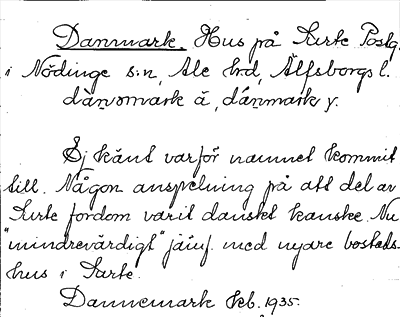 Danmark. Hus på Surte Postg.
i Nödinge s:n, Ale hrd, Älfsborgs l.
danmark ā, dánmark y.
Ej känt varför namnet kommit
till. Någon anspelning på att del av
Surte fordom varit danskt kanske. Nu
"mindrevärdigt" jämf. med nyare bostads-
hus i Surte.
Dannemark Feb. 1935.